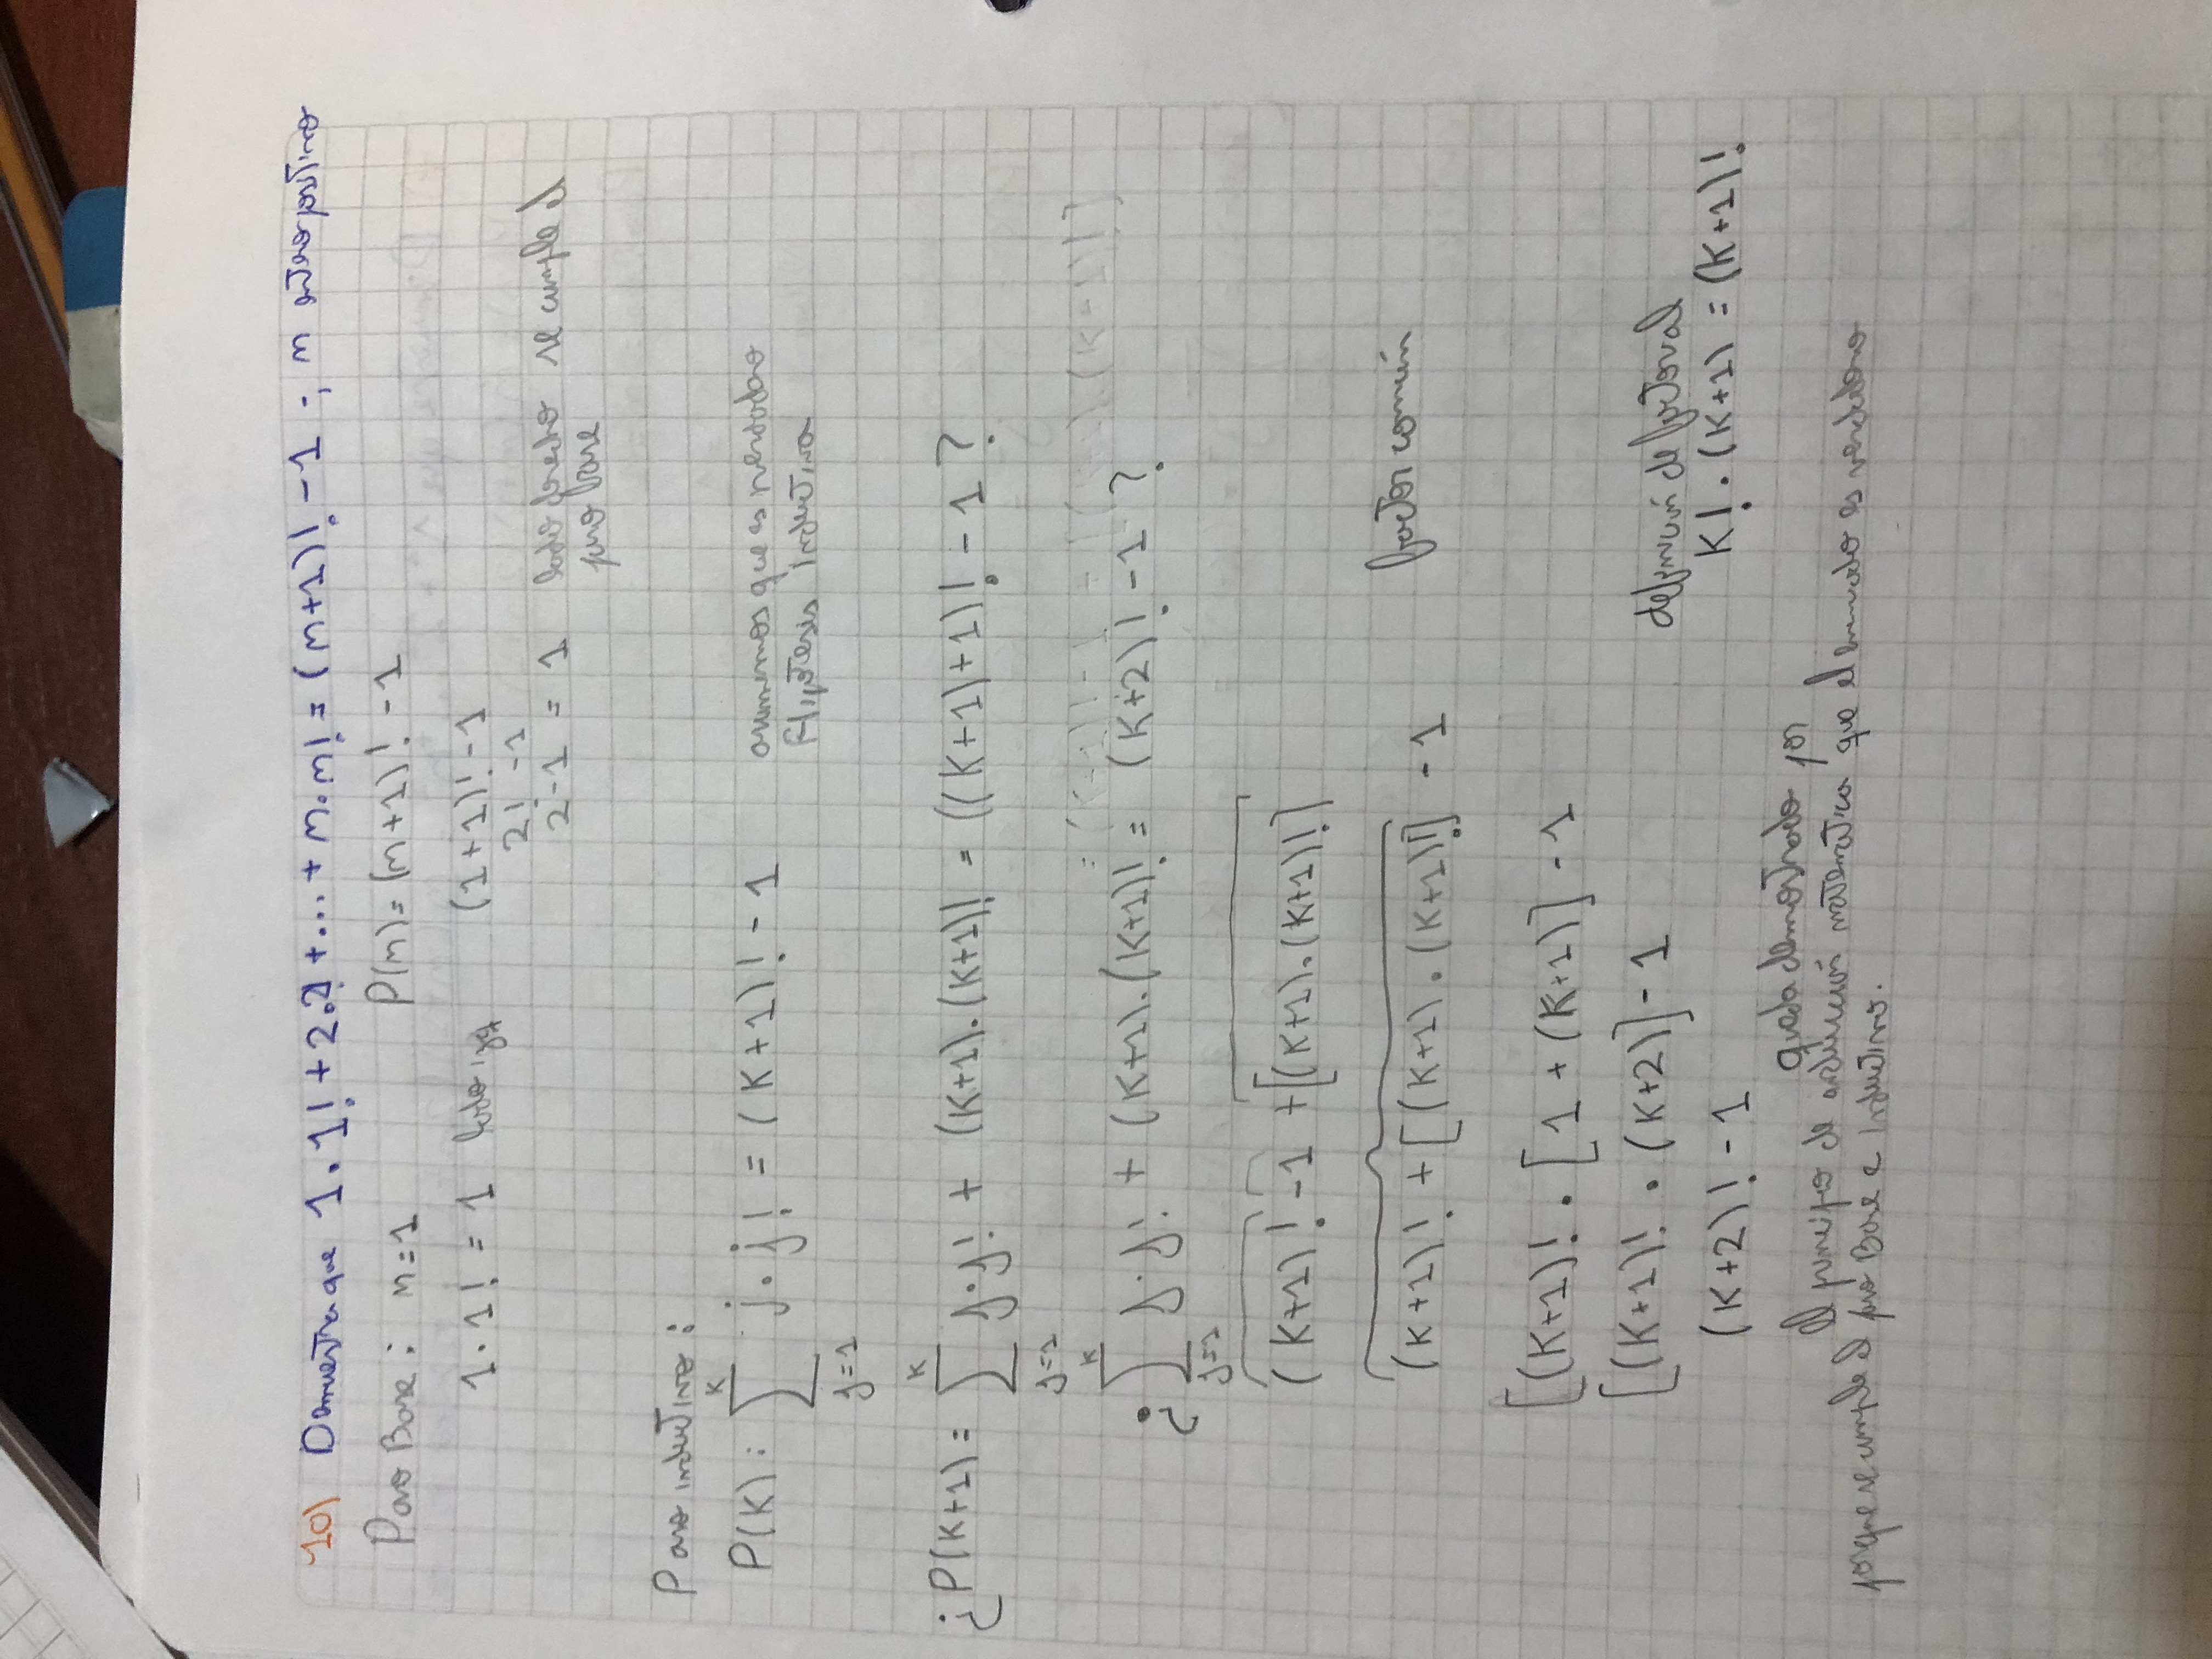 10) Demuestra que 1.1! + 2.2! + ... + n.n! = (n+1)! - 1 ; n entero positivo
Paso Base: n=1 P(n)= (n+1)! - 1
1.1! = 1 lado izq (1+1)! - 1
2! - 1
2-1 = 1 lado derecho se cumple el
paso base
Paso inductivo:
P(K): ∑_{j=1}^{K} j.j! = (K+1)! - 1 asumimos que es verdadero
Hipótesis Inductiva
¿P(K+1) = ∑_{j=1}^{K} j.j! + (K+1).(K+1)! = ((K+1)+1)! - 1 ?
¿∑_{j=1}^{K} j.j! + (K+1).(K+1)! = (K+2)! - 1 ?
(K+1)! - 1 + [(K+1).(K+1)!]
(K+1)! + [(K+1).(K+1)!] - 1 factor común
[(K+1)! . [1 + (K+1)] - 1
[(K+1)! . (K+2)] - 1 definición de factorial
(K+2)! - 1 K! . (K+1) = (K+1)!
queda demostrado por
el principio de inducción matemática que el enunciado es verdadero
porque se cumple el paso Base e Inductivo.